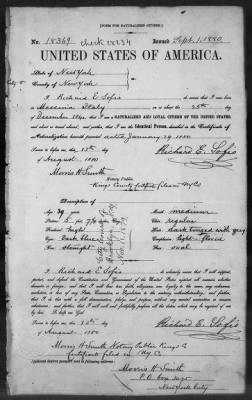 [FORM FOR NATURALIZED CITIZEN.]
No. 18369 check 28234 Issued Sept. 1, 1880.
UNITED STATES OF AMERICA.
State of New York
County of New York
I Richard E Sofio do swear that I was born
Messina Italy on the 25th day
of December that I am a NATURALIZED AND LOYAL CITIZEN OF THE UNITED STATES,
and about to travel abroad; and further, that I am the Identical Person described in the Certificate of
Naturalization herewith presented
Sworn to before me, this 28th day
of August 1880
Richard E. Sofio
Morris H Smith
Notary Public
Kings County Certificate filed in NY Co
Age: 39 years Mouth: medium
Stature: 5 feet, 7 1/4 inches Chin: regular
Forehead: high Hair: dark tinged with gray
Eyes: Dark blue Complexion: light florid
Nose: straight Face: oval
I Richard E Sofio do solemnly swear that I will support,
protect, and defend the Constitution and Government of the United States against all enemies, whether
domestic or foreign; and that I will bear true faith, allegiance and loyalty to the same, any ordinance,
resolution, or law of any State, Convention, or Legislature to the contrary notwithstanding; and further,
that I do this with a full determination, pledge, and purpose, without any mental reservation or evasion
whatsoever; and further, that I will well and faithfully perform all the duties which may be required of me
by law. So help me God.
Sworn to before me, this 28th day
of August 1880
Richard E. Sofio
Morris H Smith Notary Public Kings Co
Certificate filed in NY Co.
Applicant desires passport sent to following address:
Morris H Smith
P.O. Box
New York City